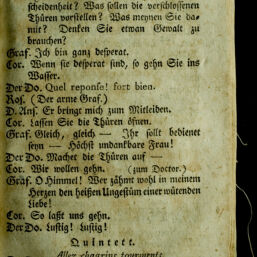 scheidenheit? Was sollen die verschlossenen
Thüren vorstellen? Was meynen Sie da-
mit? Denken Sie etwan Gewalt zu
brauchen?
Graf. Ich bin ganz desperat.
Cor. Wenn sie desperat sind, so gehn Sie ins
Wasser.
Der Do. Quel reponse! fort bien.
Ros. (Der arme Graf.)
D. Ans. Er bringt mich zum Mitleiden.
Cor. Lassen Sie die Thüren öfnen.
Graf. Gleich, gleich — Ihr sollt bedienet
seyn — Höchst undankbare Frau!
Der Do. Machet die Thüren auf —
Cor. Wir wollen gehn. (zum Doctor.)
Graf. O Himmel! Wer zähmt wohl in meinem
Herzen den heißen Ungestüm einer wütenden
Liebe!
Cor. So laßt uns gehn.
Der Do. Lustig! Lustig!
Quintett.
Allez chagrins tourments